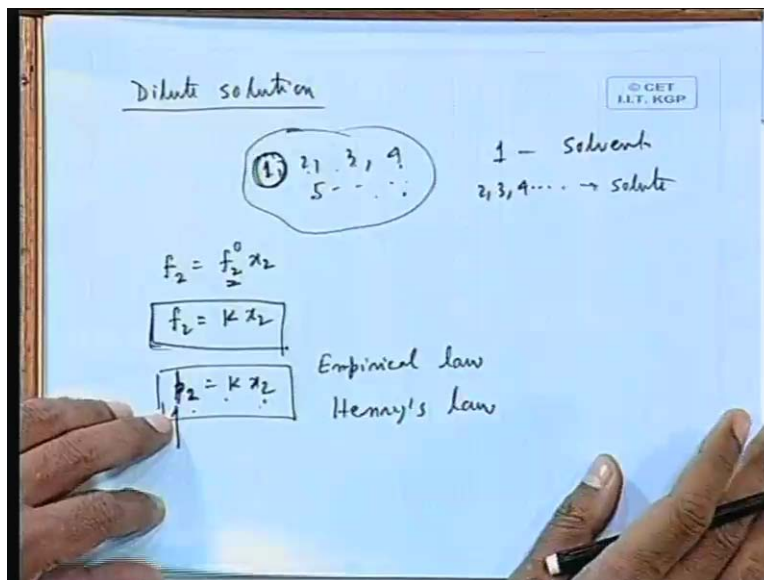 Dilute solution
© CET
I.I.T. KGP
1, 2, 3, 4
5 - - . . .
1 - Solvent
2, 3, 4 .... → solute
f₂ = f₂⁰ x₂
f₂ = K x₂
p₂ = K x₂
Empirical law
Henry's law